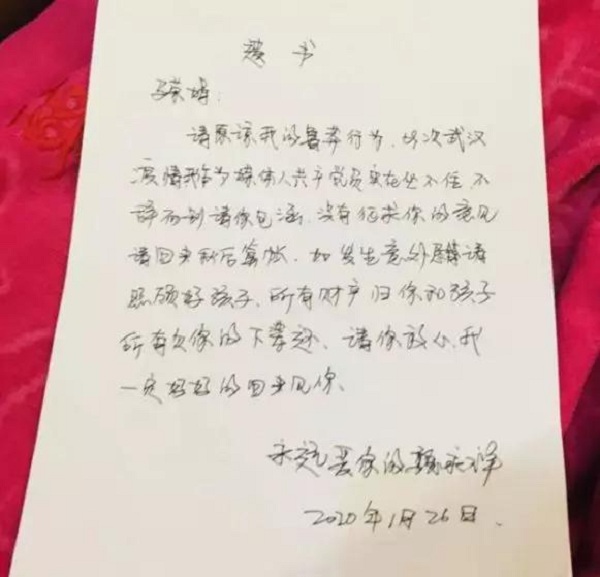 遗书
请原谅我的鲁莽行为,此次武汉
疫情我作为媒体人共产党员实在坐不住,不
辞而别请你包涵,没有征求你的意见
请回来秋后算帐.如发生意外请
照顾好孩子,所有财产归你和孩子
所有欠你的下辈还,请你放心,我
一定好好的回来见你.
永远爱你的
2020年1月26日.